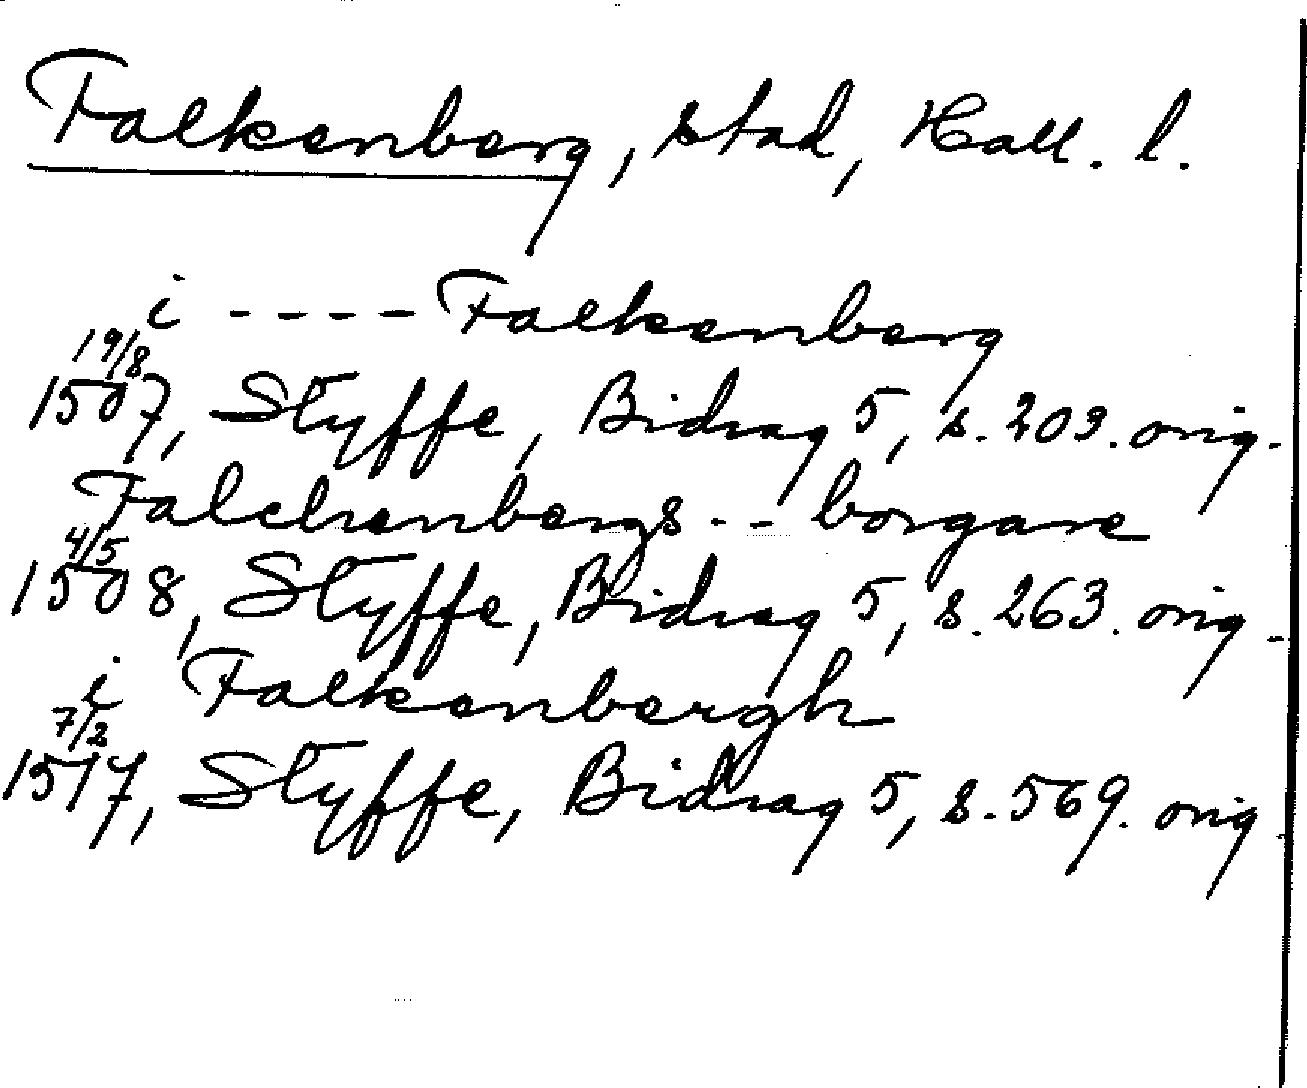 Falkenberg, stad, Hall. l.
i ---- Falkenberg
19/8
1507, Styffe, Bidrag 5, s. 209. orig.
Falchenbergs -- borgare
4/5
1508, Styffe, Bidrag 5, s. 263. orig.
i Falkenbergh
7/2
1517, Styffe, Bidrag 5, s. 569. orig